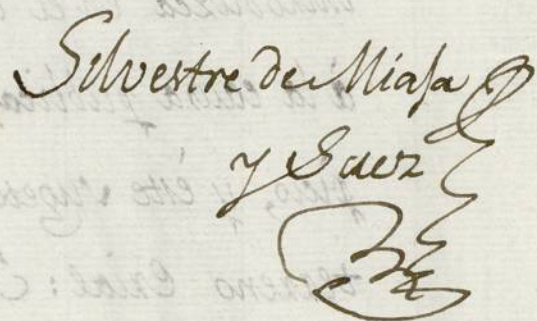 Silvestre de Miaſa
y Saez